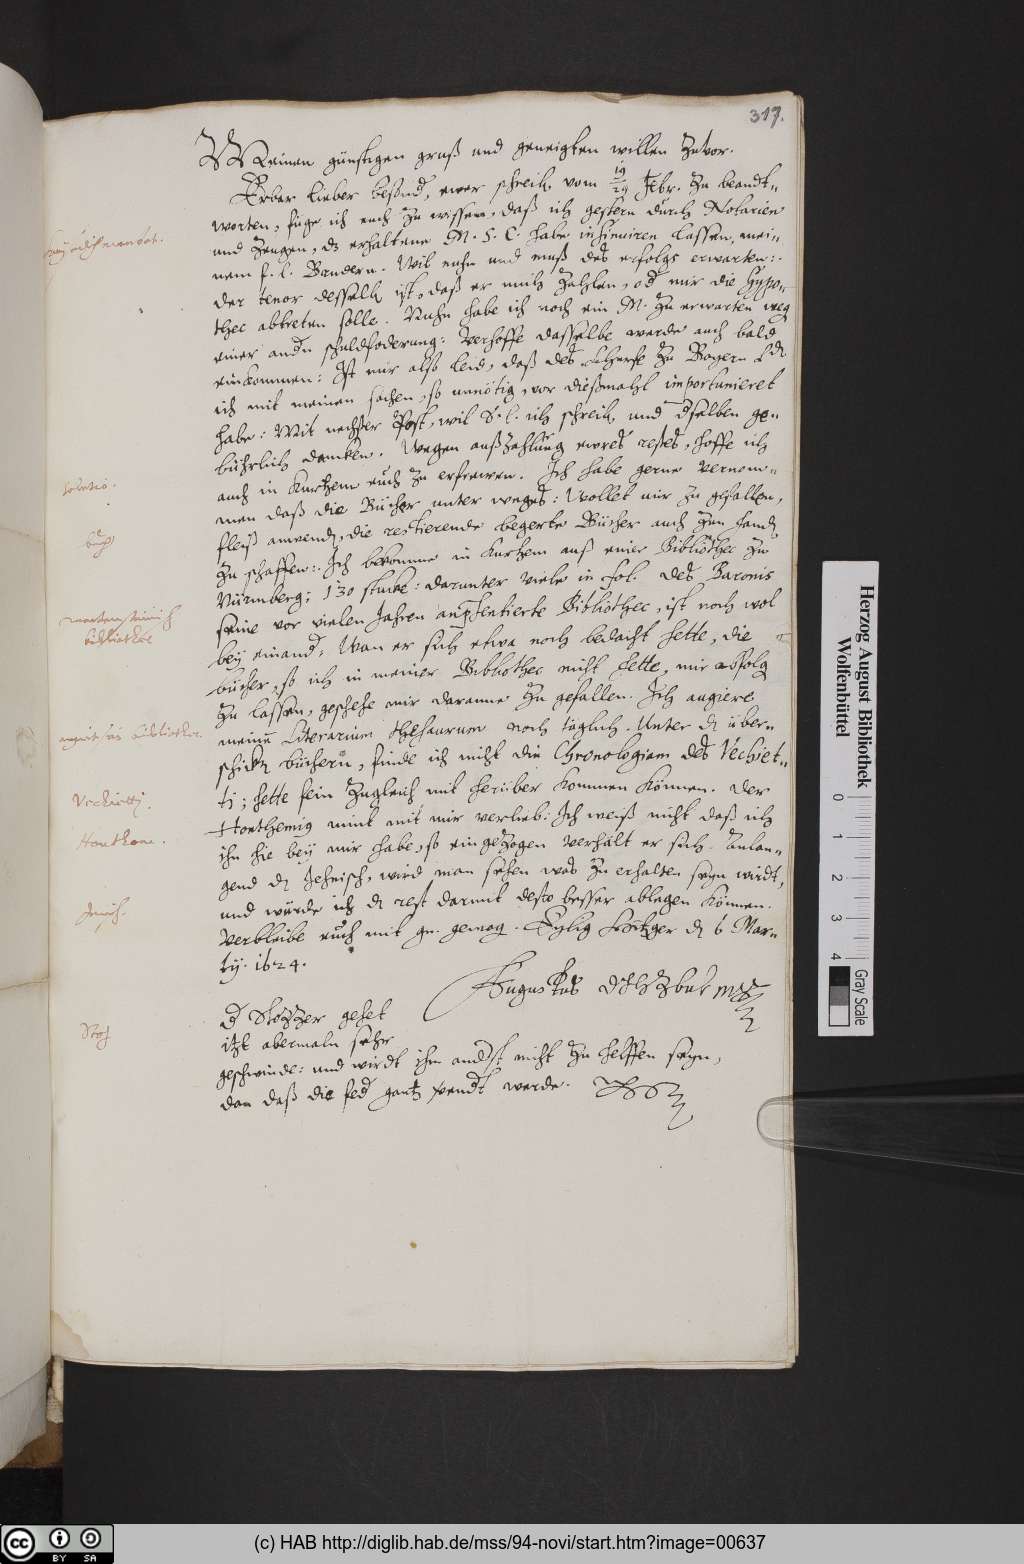 317.
Meinen günstigen gruß und geneigten willen zuvor.
Erber lieber besond, ewer schreib. vom 19/29 Febr. zu beandt-
worten, füge ich euch zu wissen, daß ich gestern durch Notarien
und Zeugen, dz erhaltene M. S. C. habe insinuiren lassen, mei-
nem f. l. Brudern. Wil nuhn und muß des erfolgs erwarten:
der tenor desselb. ist, daß er mich zahlen, od mir die Hypo-
thec abtreten solle. Nuhn habe ich noch ein M. zu erwarten weg
einer andn schuldfoderung: Verhoffe dasselbe werde auch bald
einkommen: Ist mir also leid, daß des Herzn zu Bayern Ld.
ich mit meinen sachen, so unnötig, vor dießmahl importunieret
habe: Mit nechster Post, wil S. l. ich schreib. und dselben ge-
bührlich dancken. Wegen außzahlung ewres restes, hoffe ich
auch in kurtzem euch zu erfrewen. Ich habe gerne vernom-
men daß die Bücher unter weges: Wollet mir zu gefallen,
fleiß anwend, die restierende begerte Bücher auch zur hand
zu schaffen: Ich bekomme in kurtzem auß einer Bibliothec zu
Nürmberg: 130 stucke: darunter viele in fol. des Baronis
seine vor vielen Jahren anpsentierte Bibliothec, ist noch wol
bey einand: Wan er sich etwa noch bedacht hette, die
bücher, so ich in meiner Bibliothec nicht hette, mir abfolg
zu lassen, geschehe mir daranne zu gefallen. Ich augiere
meinen Literarium thesaurum noch täglich. Unter d. über-
schickt büchern, finde ich nicht die Chronologiam des Vechiet-
ti; hette fein zugleich mit herüber kommen können. Der
Honthemig nimt mit mir verlieb: Ich weiß nicht daß ich
ihn hie bey mir habe, so eingezogen verhält er sich. Anlan-
gend d. Jehnisch, wird man sehen was zu erhalten seyn wirdt,
und würde ich d. rest darmit desto besser ablegen können.
Verbleibe euch mit gn. gewog. Eylig Hitzger d. 6 Mar-
tij. 1624.
Augustus
d Stözzer gehet
itzt abermaln sehr
geschwinde: und wirdt ihm andst nicht zu helffen seyn,
dan daß die fed gantz werde.
solutio.
bibliothec
augustus bibliothec.
Vechietti.
Honthem.
Jenisch.
Stoz
Herzog August Bibliothek
Wolfenbüttel
0 1 2 3 4
Gray Scale
cc BY SA
(c) HAB http://diglib.hab.de/mss/94-novi/start.htm?image=00637